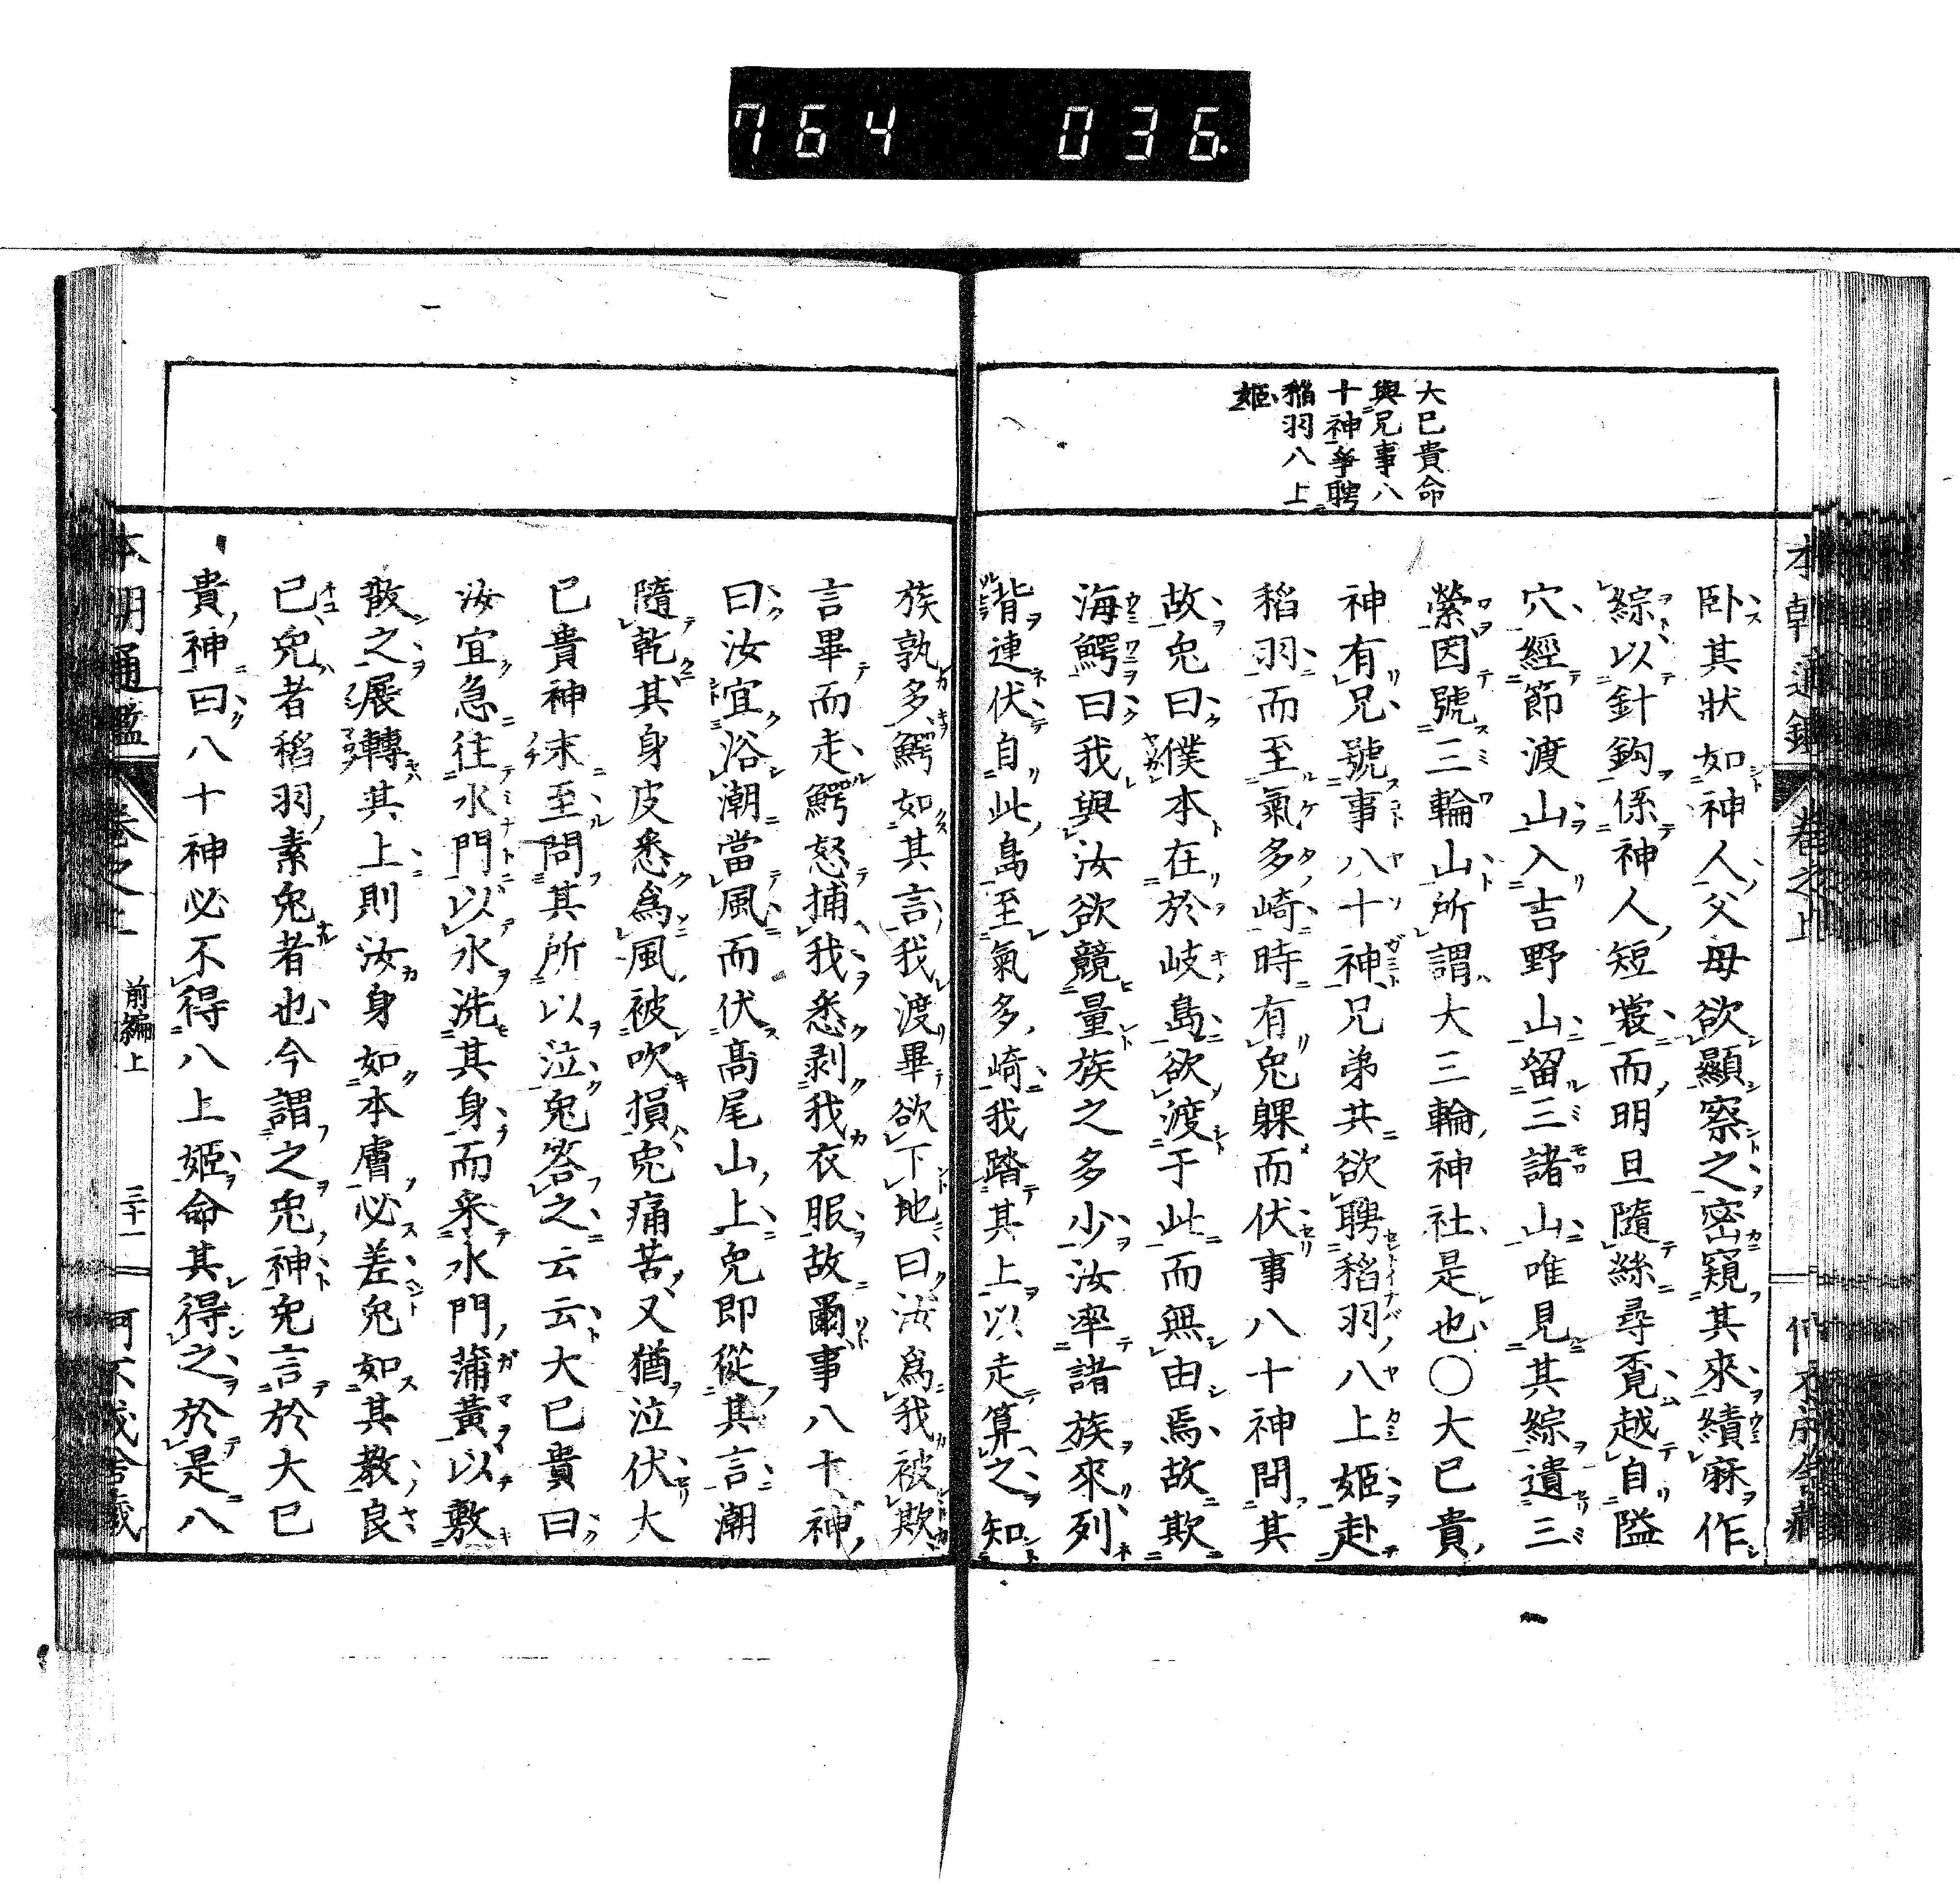 764 036
大已貴命
與兄事八
十神爭聘
稻羽八上
姬
卧其狀如神人父母欲顯察之密窺其來績麻作
綜以針鈎係神人短裳而明旦隨絲尋覔越自隘
穴經節渡山入吉野山留三諸山唯見其綜遺三
縈因號三輪山所謂大三輪神社是也○大已貴
神有兄號事八十神兄弟共欲聘稻羽八上姬赴
稻羽而至氣多崎時有兔躶而伏事八十神問其
故兔曰僕本在於岐島欲渡于此而無由焉故欺
海鰐曰我與汝欲競量族之多少汝率諸族來列
背連伏自此島至氣多崎我踏其上以走算之知
族孰多鰐如其言我渡畢欲下地曰汝爲我被欺
言畢而走鰐怒捕我悉剥我衣服故爾事八十神
曰汝宜浴潮當風而伏高尾山上兔即從其言潮
隨乾其身皮悉爲風被吹損兔痛苦又猶泣伏大
已貴神末至問其所以泣兔答之云云大已貴曰
汝宜急往水門以水洗其身而来水門蒲黃以敷
散之展轉其上則汝身如本膚必差兔如其教良
已兔者稻羽素兔者也今謂之兔神兔言於大已
貴神曰八十神必不得八上姬命其得之於是八
本朝通鑑 卷之上 前編上 三十一